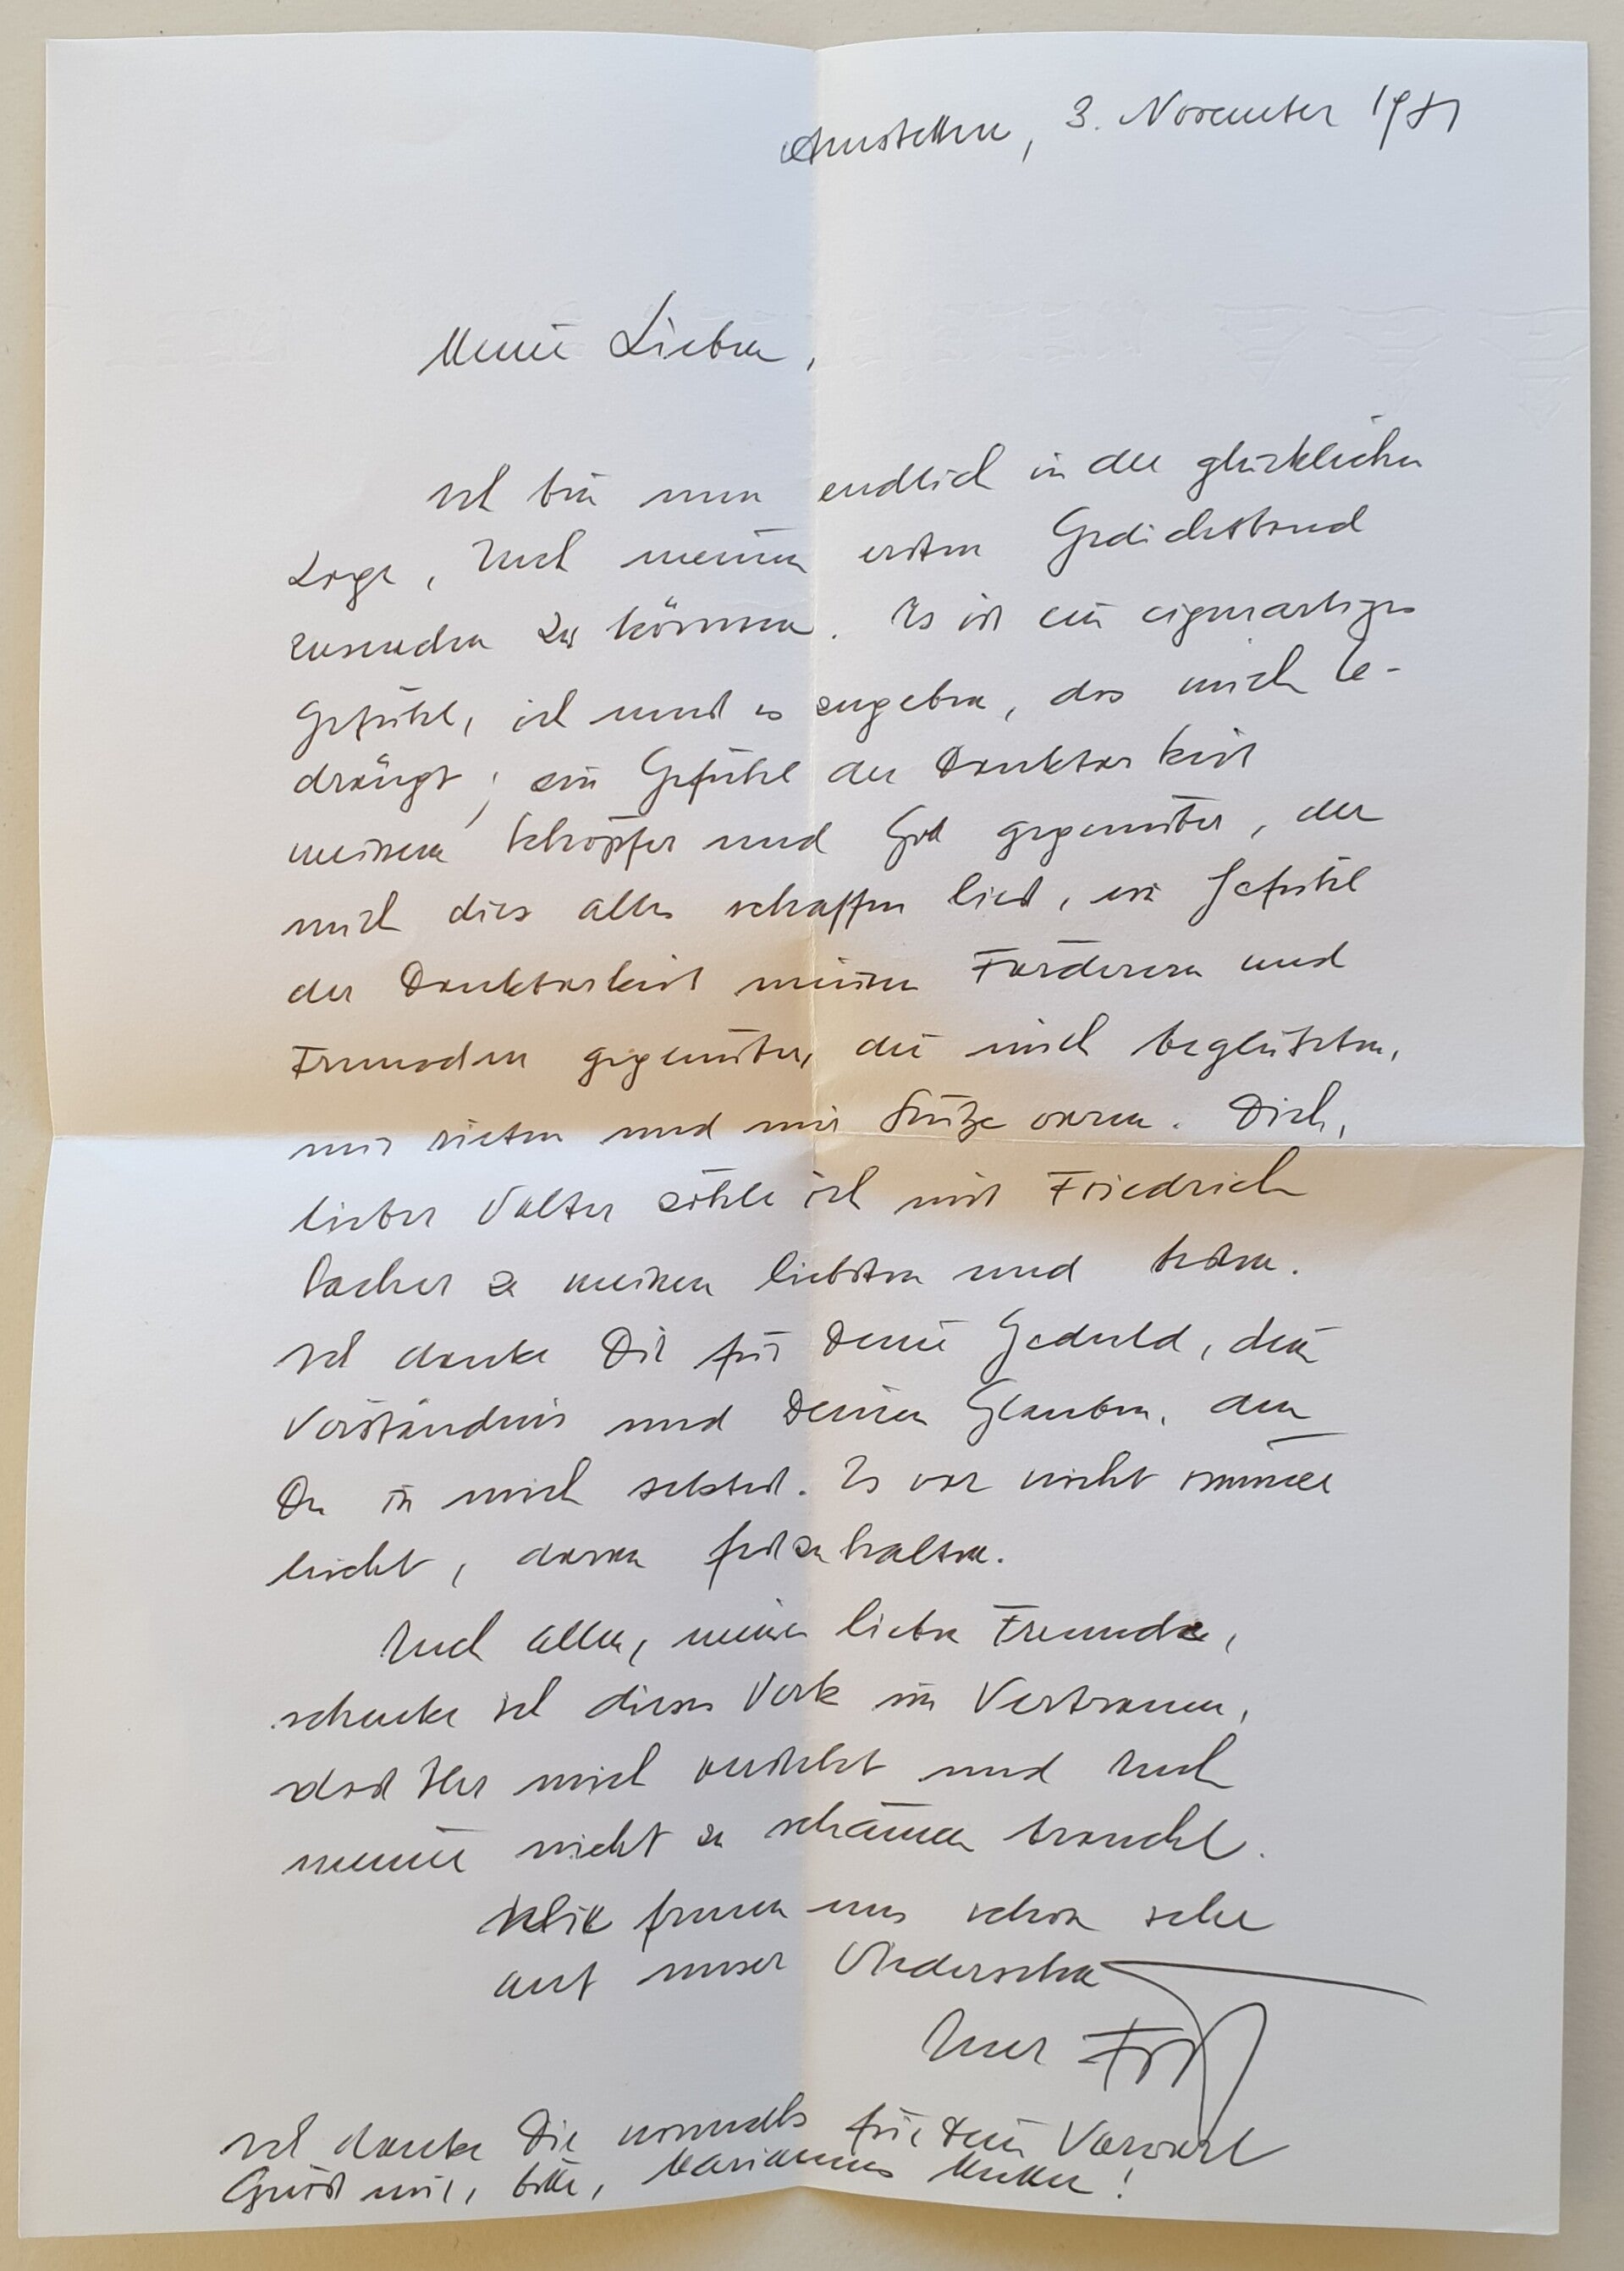 Amstetten, 3. November 1981
Meine Lieben,
ich bin nun endlich in der glücklichen
Lage, Euch meinen ersten Gedichtband
zusenden zu können. Es ist ein eigenartiges
Gefühl, ich muß es zugeben, das mich be-
drängt; ein Gefühl der Dankbarkeit
meinem Schöpfer und Gott gegenüber, der
mich dies alles schaffen ließ, ein Gefühl
der Dankbarkeit meinen Förderern und
Freunden gegenüber, die mich beglückten,
mir rieten und mir Stütze waren. Dich,
lieber Walter zähle ich mit Friedrich
zu meinen liebsten und besten.
Ich danke Dir für Deine Geduld, dein
Verständnis und Deinen Glauben, den
Du in mich setztest. Es war nicht immer
leicht, daran festzuhalten.
Euch allen, meinen lieben Freunden,
schenke ich dieses Werk im Vertrauen,
daß Ihr mich versteht und Euch
meiner nicht zu schämen braucht.
Wir freuen uns schon sehr
auf unser Wiedersehen
Euer
Ich danke Dir nochmals für Dein Vorwort
Grüß mir, bitte, Mariannes Mutter!